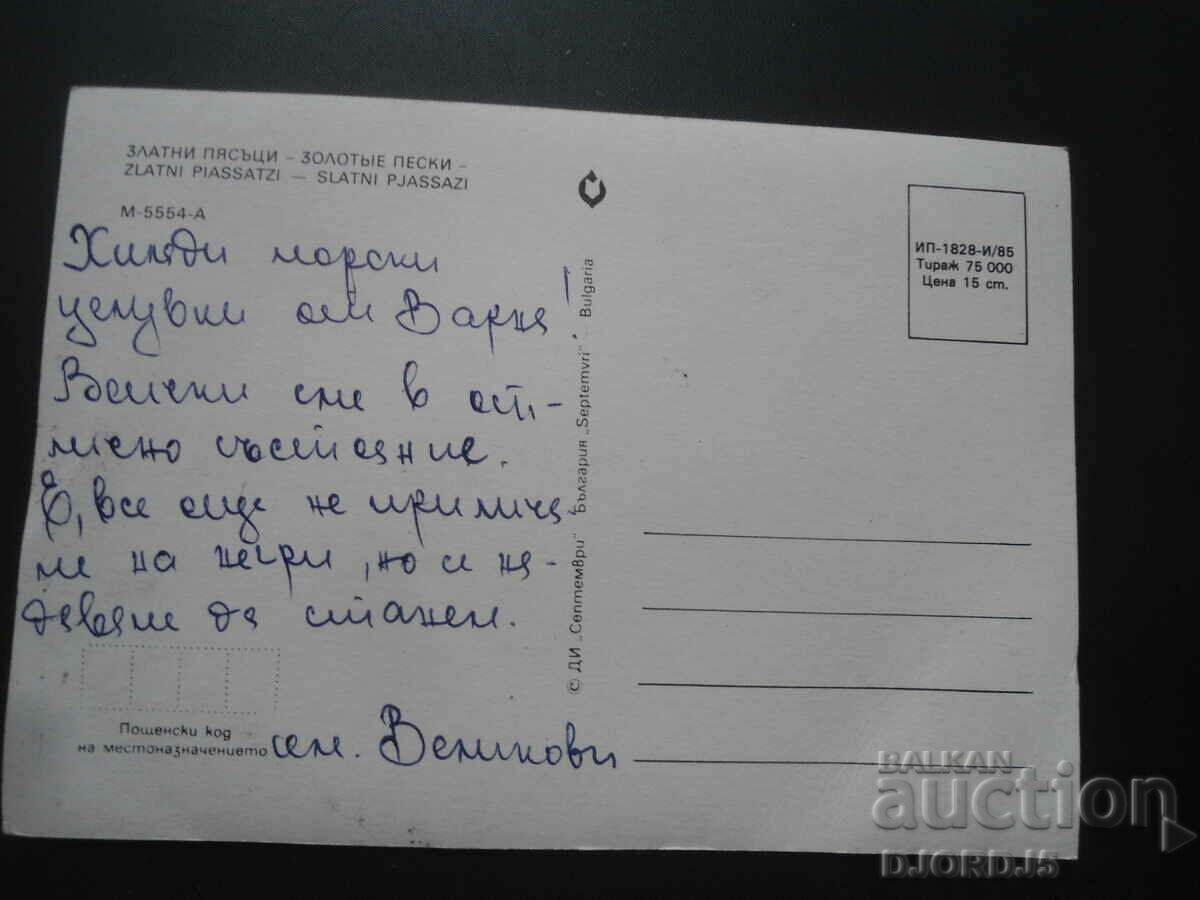 ЗЛАТНИ ПЯСЪЦИ – ЗОЛОТЫЕ ПЕСКИ –
ZLATNI PIASSATZI — SLATNI PJASSAZI
М-5554-А
Хиляди морски
целувки от Варна!
Всички сме в от-
лично състояние.
Е, все още не прилича-
ме на негри, но се на-
дяваме да станем.
сем. Великови
Пощенски код
на местоназначението
© ДИ „Септември“ България „Septemvri“ Bulgaria
ИП-1828-И/85
Тираж 75 000
Цена 15 ст.
BALKAN
auction
DJORDJ5